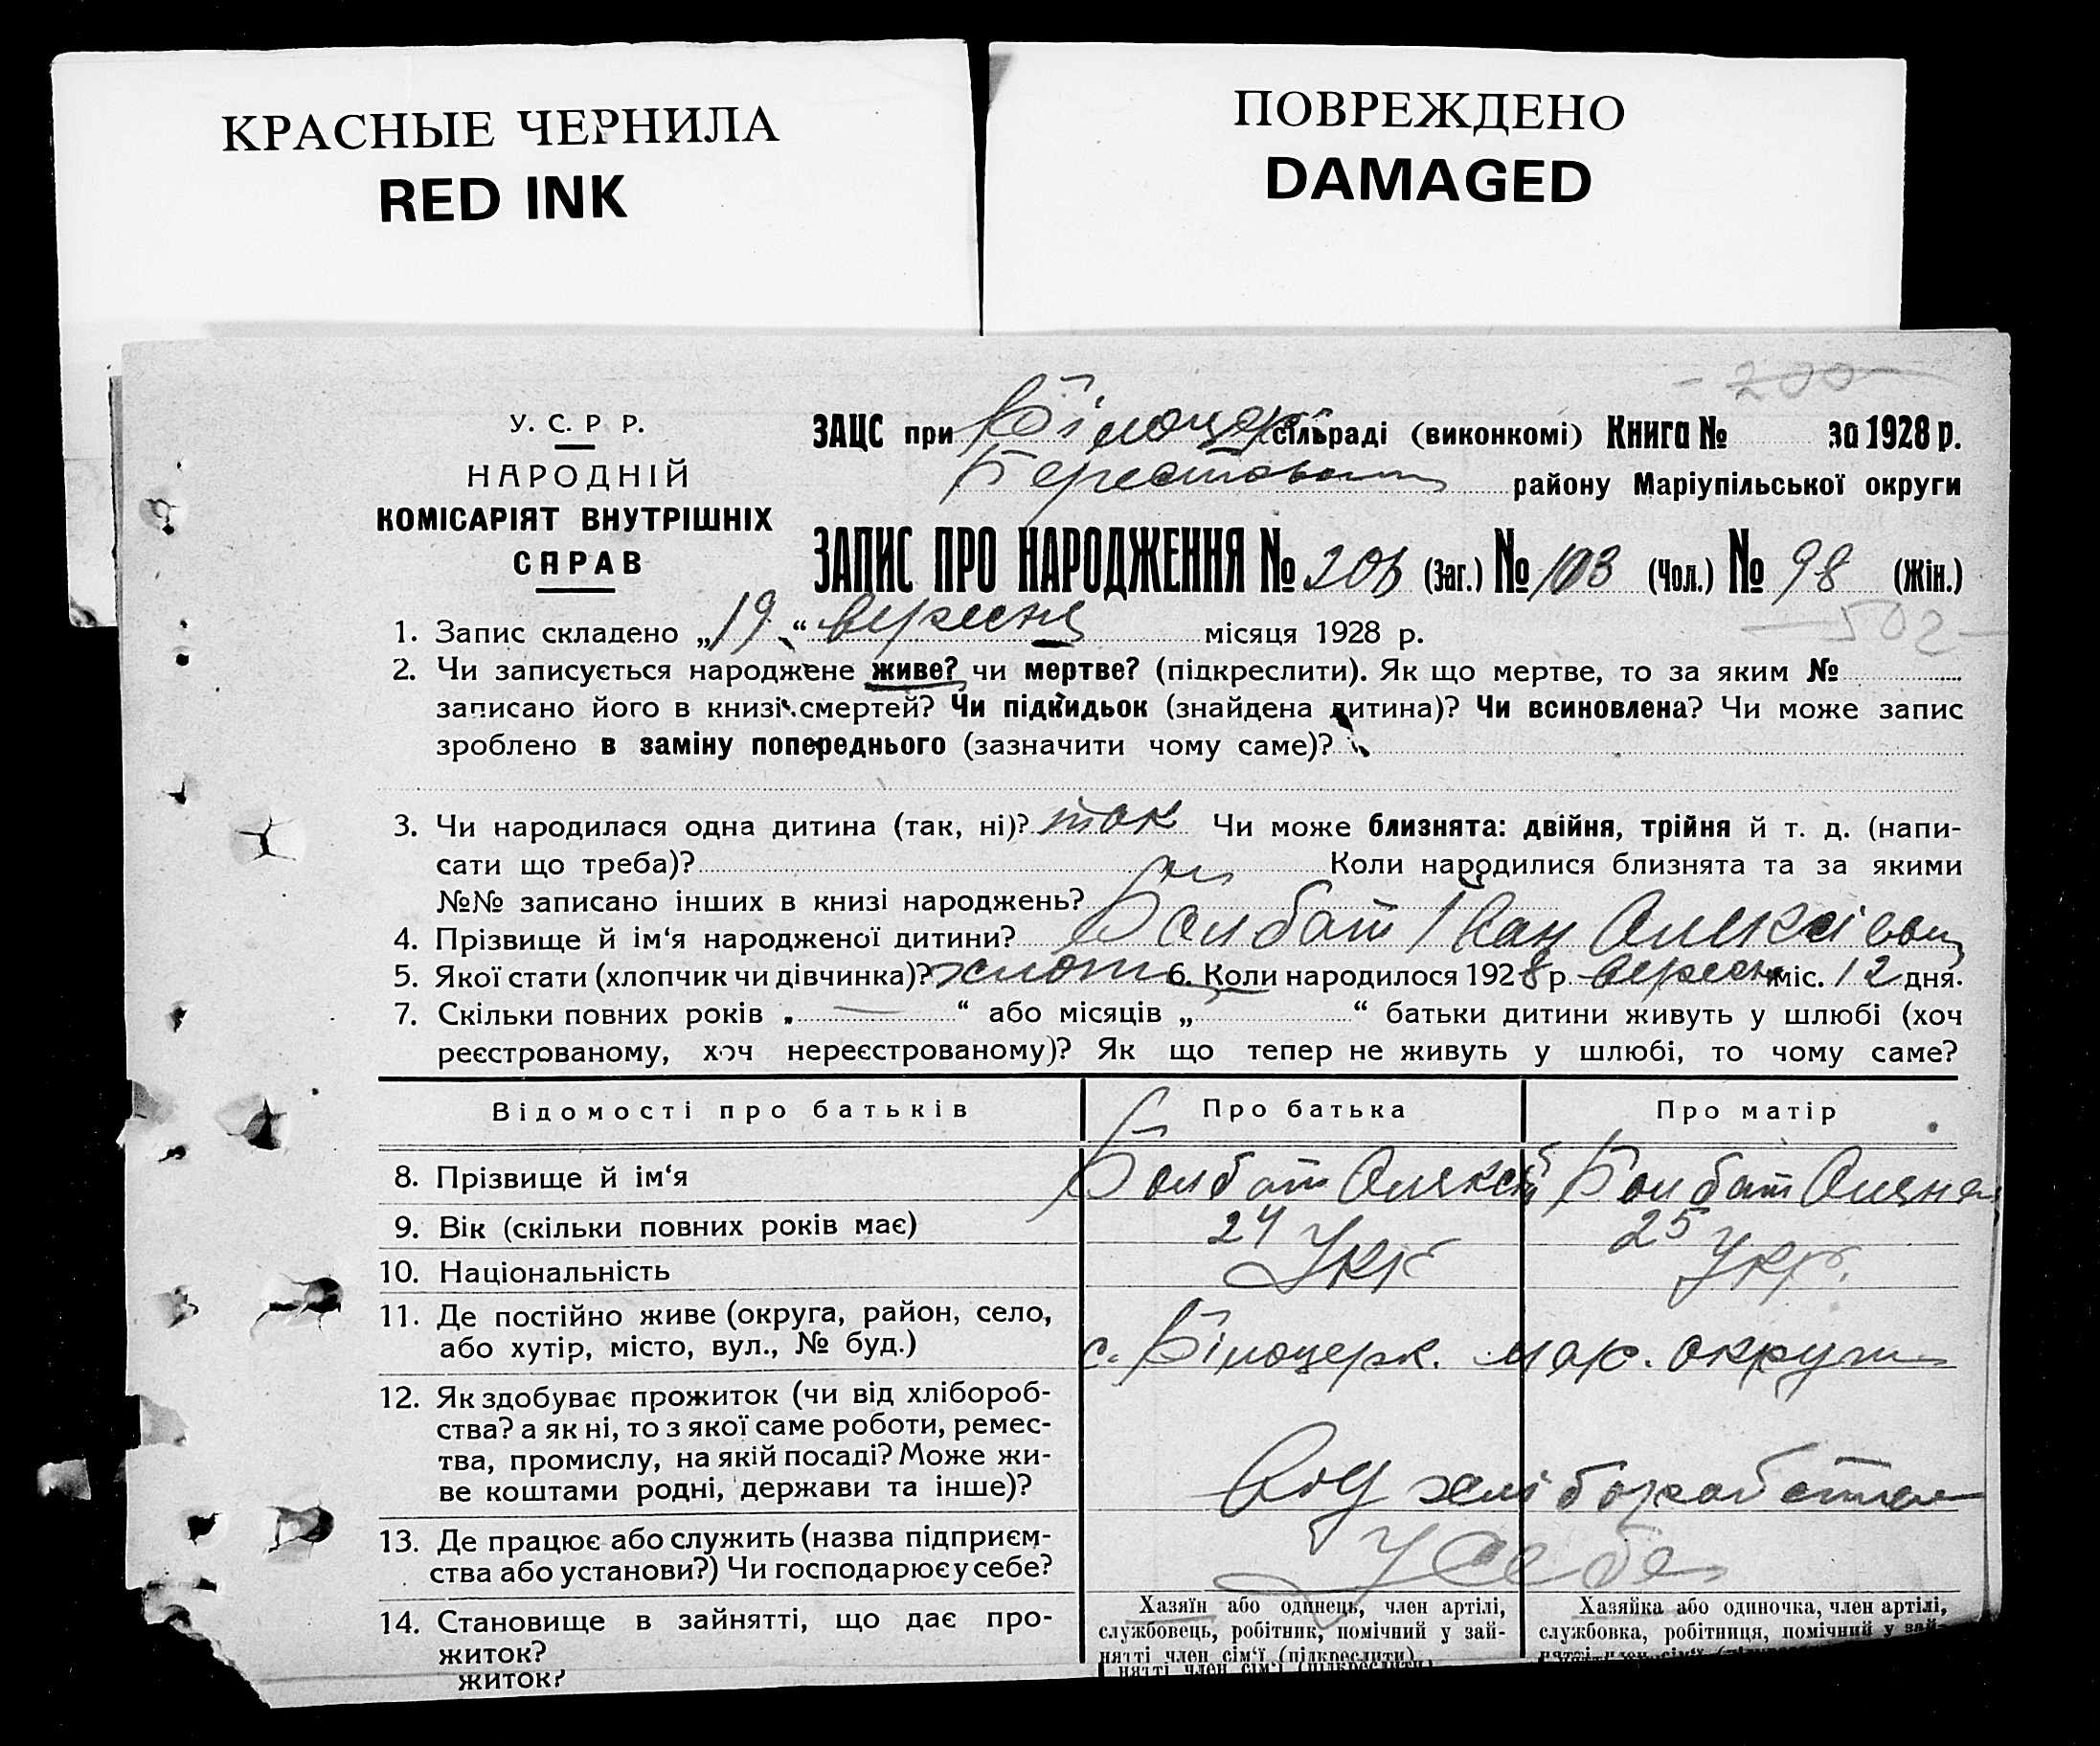 КРАСНЫЕ ЧЕРНИЛА
RED INK
ПОВРЕЖДЕНО
DAMAGED
- 200
У. С. Р Р.
НАРОДНІЙ
КОМІСАРІЯТ ВНУТРІШНІХ
СПРАВ
ЗАЦС при Білоцерк сільраді (виконкомі) Книга № за 1928 р.
Берестовськ району Маріупільської округи
ЗАПИС ПРО НАРОДЖЕННЯ № (Заг.) № 103 (Чол.) № 98 (Жін.)
502
1. Запис складено „19“ вересня місяця 1928 р.
2. Чи записується народжене живе? чи мертве? (підкреслити). Як що мертве, то за яким №
записано його в книзі смертей? Чи підкидьок (знайдена дитина)? Чи всиновлена? Чи може запис
зроблено в заміну попереднього (зазначити чому саме)?
3. Чи народилася одна дитина (так, ні)? так Чи може близнята: двійня, трійня й т. д. (напи-
сати що треба)? Коли народилися близнята та за якими
№№ записано інших в книзі народжень?
4. Прізвище й ім‘я народженої дитини? Болбат Іван Олексієвич
5. Якої статі (хлопчик чи дівчинка)? хлопч 6. Коли народилося 1928 р. вересня міс. 12 дня.
7. Скільки повних років „ — “ або місяців „ “ батьки дитини живуть у шлюбі (хоч
реєстрованому, хоч нереєстрованому)? Як що тепер не живуть у шлюбі, то чому саме?
Відомості про батьків Про батька Про матір
8. Прізвище й ім‘я Болбат Олексій Болбат Олена
9. Вік (скільки повних років має) 24 25
10. Національність Укр Укр.
11. Де постійно живе (округа, район, село,
або хутір, місто, вул., № буд.) с. Білоцерк. мар. округи
12. Як здобуває прожиток (чи від хлібороб-
ства? а як ні, то з якої саме роботи, ремес-
тва, промислу, на якій посаді? Може жи-
ве коштами родні, держави та інше)? Від хліборобства
13. Де працює або служить (назва підприєм-
ства або установи?) Чи господарює у себе? У себе
14. Становище в зайнятті, що дає про-
житок?
житок?
Хазяїн або одинець, член артілі,
службовець, робітник, помічний у зай-
нятті член сім‘ї (підкреслити)
нятті член сім‘ї (підкреслити)
Хазяйка або одиночка, член артілі,
службовка, робітниця, помічний у зай-